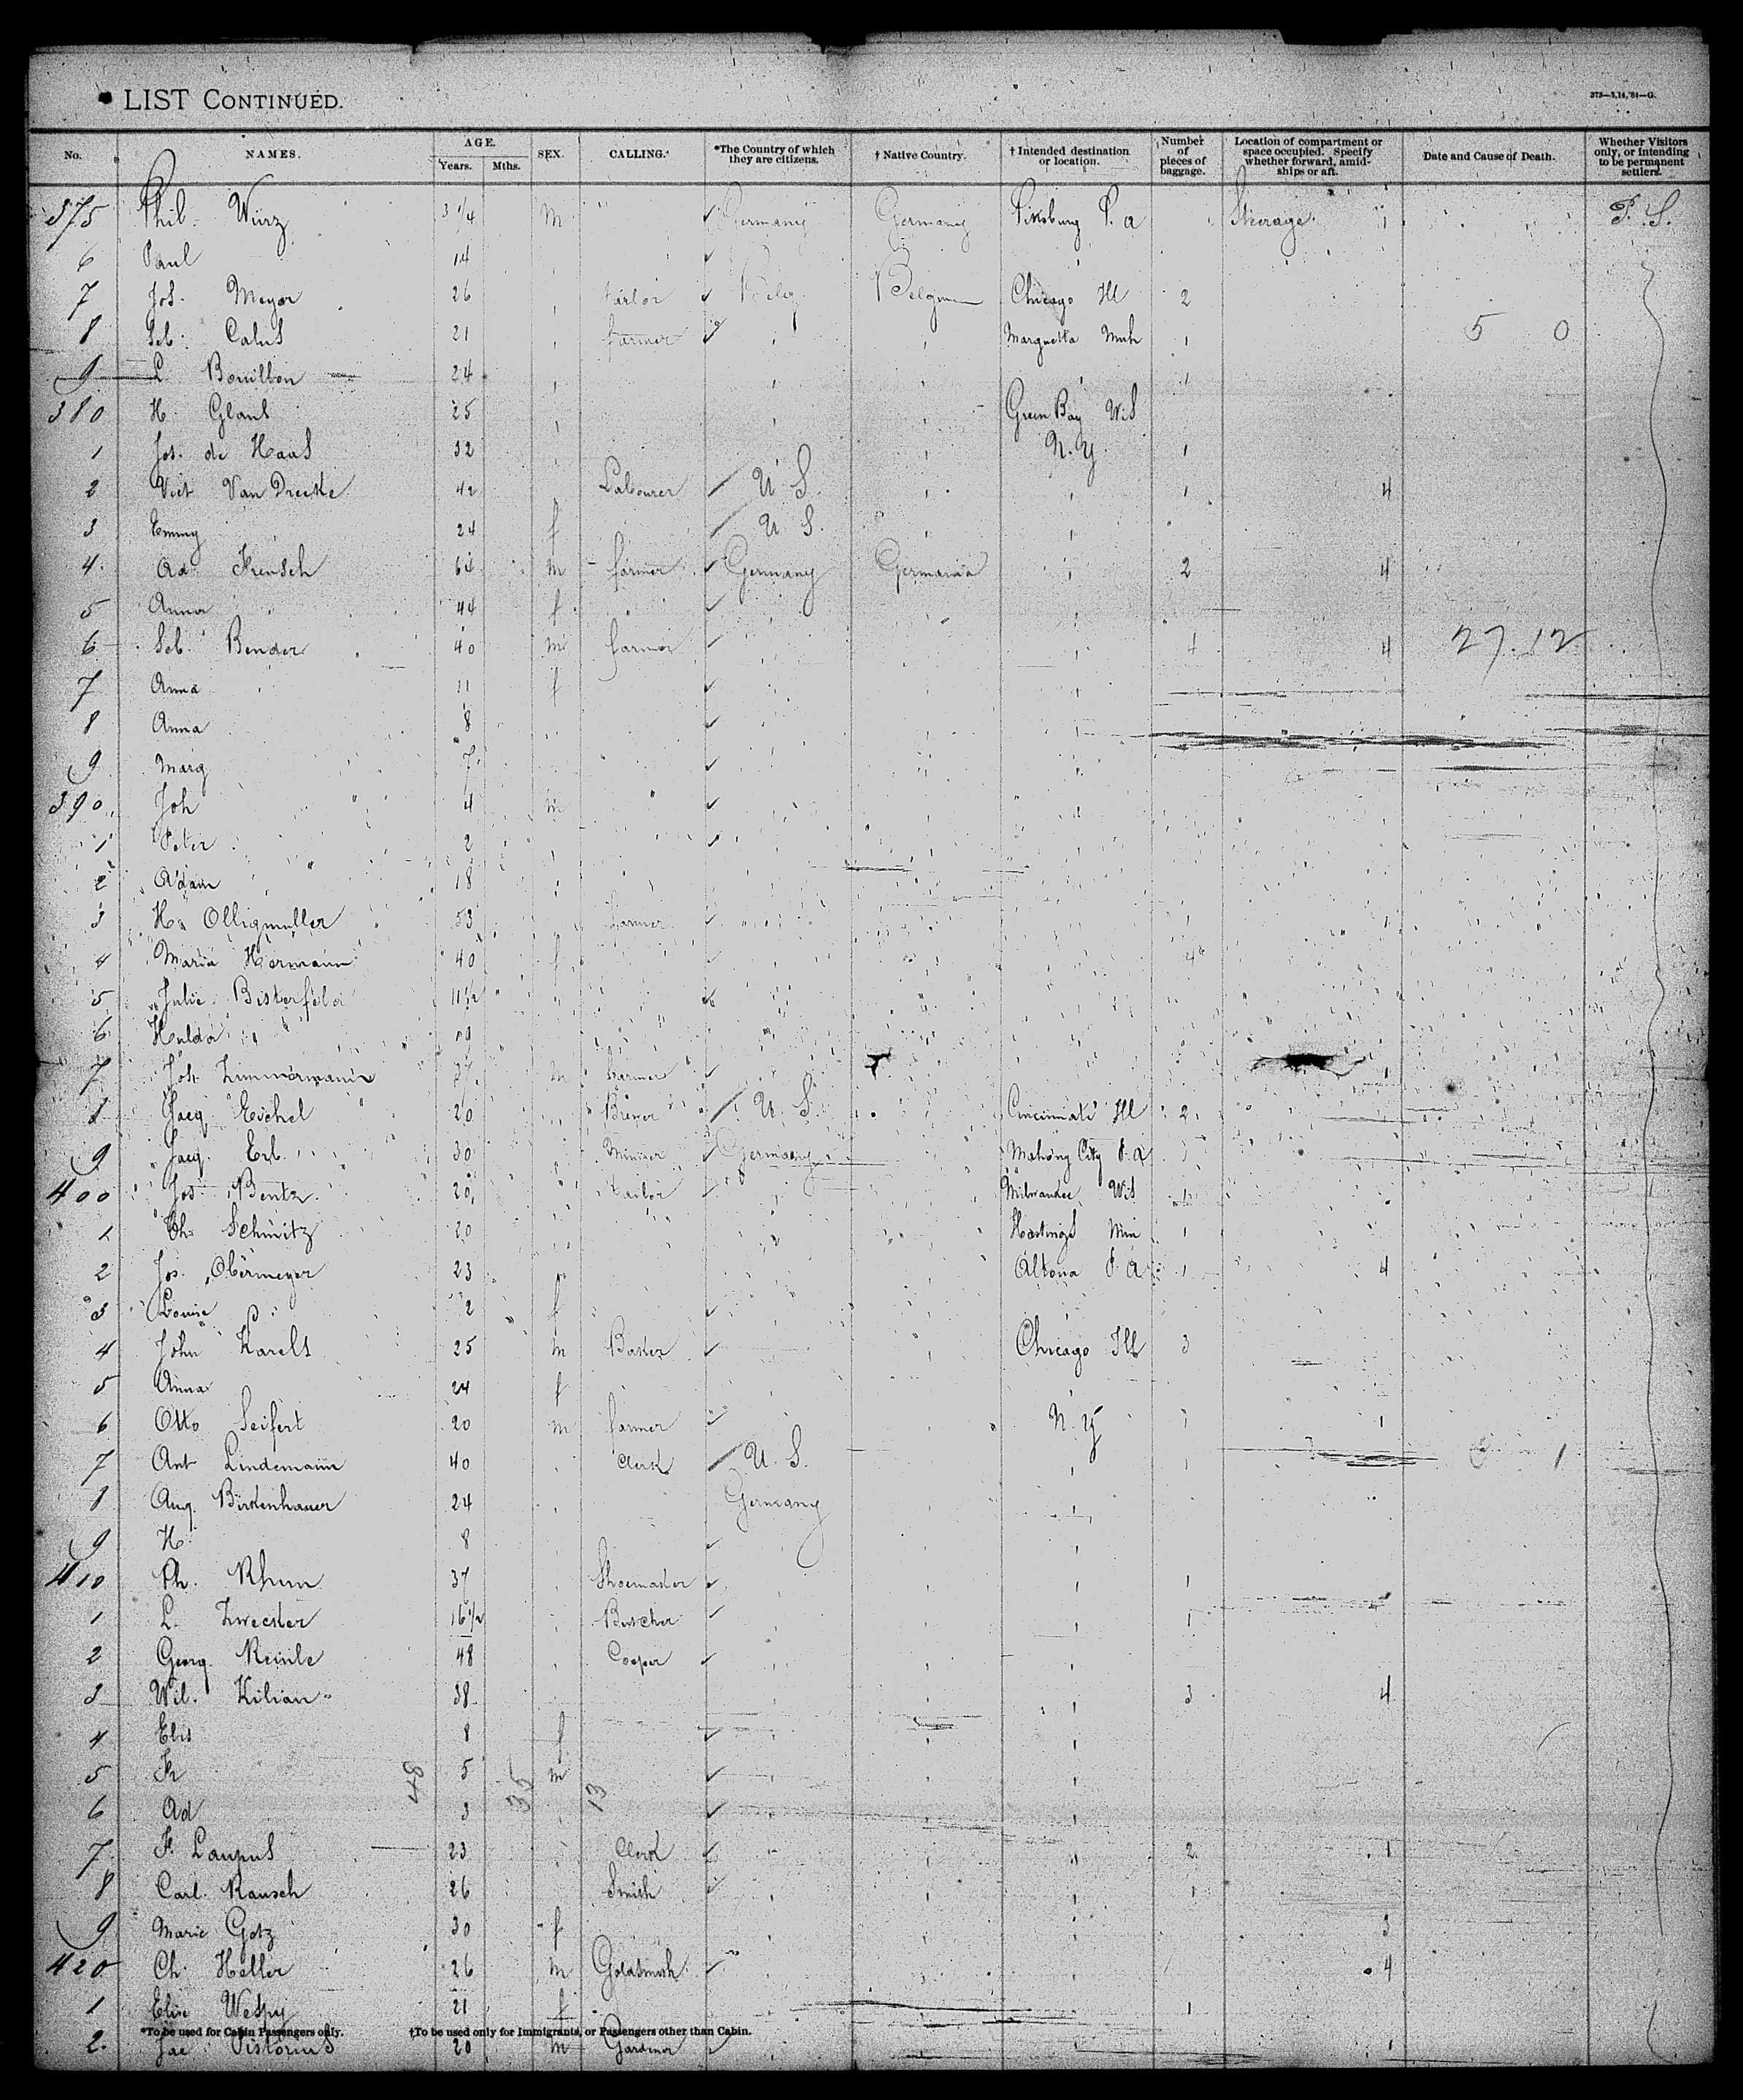 LIST CONTINUED.
373—7,14,'81—G.
No. NAMES. AGE. Years. Mths. SEX. CALLING. *The Country of which they are citizens. † Native Country. † Intended destination or location. Number of pieces of baggage. Location of compartment or space occupied. Specify whether forward, amidships or aft. Date and Cause of Death. Whether Visitors only, or intending to be permanent settlers.
375 Phil. Würz 3 1/4 m Germany Germany Pittsburg P. a Steerage P. S.
6 Paul 14
7 Jos. Meyer 26 tailor Belg. Belgium Chicago Ill 2
8 Seb. Calus 21 farmer Marquetta Mich 1 5 0
9 L. Bouillon 24 1
380 H. Glans 25 Green Bay Wis
1 Jos. de Haas 32 N. Y. 1
2 Vict Van Drecke 42 Labourer U S. 1 4
3 Emmy 24 f U S.
4 Ad. Frensch 64 m farmer Germany Germania 2 4
5 Anna 44 f
6 Seb. Bender 40 m farmer 4 4 27.12
7 Anna 11 f
8 Anna 8
9 Marg 7
390 Joh 4 m
1 Peter 2
2 Adam 18
3 H. Olligmuller 53 farmer 1 1
4 Maria Hermann 40 f 4
5 Julie Bisterfeld 11 1/2
6 Hulda 19
7 Joh. Zimmermann 37 m farmer 1
8 Jacq Eichel 20 Brewer U. S. Cincinnati Ill 2
9 Jacq. Erb 30 Minner Germany Mahony City P. a
400 Jos. Bentz 20 tailor Milwaukee Wis 1
1 Ch. Schmitz 20 Hastings Min 1
2 Jos. Obermeyer 23 Altona P. a 1 4
3 Louise 2 f
4 John Karels 25 m Baker Chicago Ill 3
5 Anna 24 f
6 Otto Seifert 20 m farmer N. Y 1 1
7 Ant Lindemann 40 Clerk U. S. 1 1
8 Aug. Birkenhauer 24 Germany
9 H. 8
410 Ph. Rhum 37 Shoemaker 1
1 L. Zwecker 16 1/2 Butcher 1
2 Georg Reinle 48 Cooper
3 Wil. Kilian 38 3 4
4 Elis 8 f
5 Fr 5 m
6 Ad 3
48 35 13
7 F. Laupus 23 Clerk 2 1
8 Carl. Rausch 26 Smith 1
9 Marie Gotz 30 f 3
420 Ch. Heller 26 m Goldsmith 4
1 Elise Wespy 21 f 1
*To be used for Cabin Passengers only. †To be used only for Immigrants, or Passengers other than Cabin.
2. Jac Pistorius 20 m Gardner 1